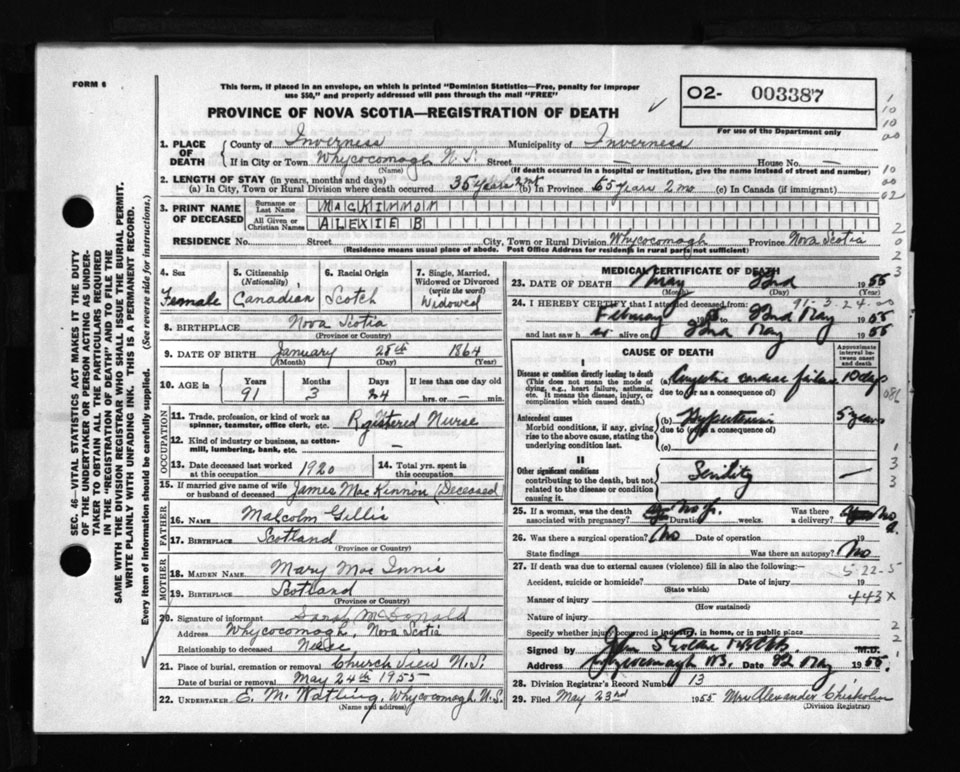 FORM 6
This form, if placed in an envelope, on which is printed "Dominion Statistics—Free, penalty for improper
use $50," and properly addressed will pass through the mail "FREE"
02- 003387
For use of the Department only
PROVINCE OF NOVA SCOTIA—REGISTRATION OF DEATH
1. PLACE OF DEATH
County of Inverness Municipality of Inverness
If in City or Town Whycocomagh N.S. Street — House No. —
(Name) (If death occurred in a hospital or institution, give the name instead of street and number)
2. LENGTH OF STAY (in years, months and days)
(a) In City, Town or Rural Division where death occurred 35 years 2 mt (b) In Province 65 years 2 mo (c) In Canada (if immigrant)
3. PRINT NAME OF DECEASED
Surname or Last Name MACKINNON
All Given or Christian Names ALEXIE B
RESIDENCE No. Street City, Town or Rural Division Whycocomagh Province Nova Scotia
(Residence means usual place of abode. Post Office Address for residents in rural parts not sufficient)
4. Sex
Female
5. Citizenship
(Nationality)
Canadian
6. Racial Origin
Scotch
7. Single, Married, Widowed or Divorced
(write the word)
Widowed
8. BIRTHPLACE Nova Scotia
(Province or Country)
9. DATE OF BIRTH January 28th 1864
(Month) (Day) (Year)
10. AGE in
Years 91 Months 3 Days 24 If less than one day old
hrs. or — min.
OCCUPATION
11. Trade, profession, or kind of work as
spinner, teamster, office clerk, etc. Rgistered Nurse
12. Kind of industry or business, as cotton-
mill, lumbering, bank, etc. —
13. Date deceased last worked
at this occupation 1920
14. Total yrs. spent in
this occupation
15. If married give name of wife
or husband of deceased James MacKinnon (Deceased
FATHER
16. NAME Malcolm Gillis
17. BIRTHPLACE Scotland
(Province or Country)
MOTHER
18. MAIDEN NAME Mary Mac Innis
19. BIRTHPLACE Scotland
(Province or Country)
20. Signature of informant Sarah McDonald
Address Whycocomagh, Nova Scotia
Relationship to deceased Niece
21. Place of burial, cremation or removal Church View N.S.
Date of burial or removal May 24th 1955
22. UNDERTAKER E. M. Watling, Whycocomagh N.S.
(Name and address)
MEDICAL CERTIFICATE OF DEATH
23. DATE OF DEATH May 22nd 1955
(Month) (Day) (Year)
91-3-24
24. I HEREBY CERTIFY that I attended deceased from:
February 1955 to 22nd May 1955
and last saw h alive on 22nd May 1955
CAUSE OF DEATH
Approximate interval between onset and death
I
Disease or condition directly leading to death
(This does not mean the mode of
dying, e.g., heart failure, asthenia,
etc. It means the disease, injury, or
complication which caused death.)
(a) Congestive cardiac failure 10 days
due to (or as a consequence of)
Antecedent causes
Morbid conditions, if any, giving
rise to the above cause, stating the
underlying condition last.
(b) Hypertension 5 years
due to (or as a consequence of)
(c)
II
Other significant conditions
contributing to the death, but not
related to the disease or condition
causing it.
Senility
25. If a woman, was the death
associated with pregnancy? No Duration weeks. Was there
a delivery? No
26. Was there a surgical operation? No Date of operation
State findings Was there an autopsy? No
27. If death was due to external causes (violence) fill in also the following:—
5-22-5
Accident, suicide or homicide? Date of injury 19
(State which)
443 X
Manner of injury
(How sustained)
Nature of injury
Specify whether injury occurred in industry, in home, or in public place
Signed by M.D.
Address Whycocomagh N.S. Date 22 May 1955.
28. Division Registrar's Record Number 13
29. Filed May 23rd 1955 Mrs Alexander Chisholm
(Division Registrar)
SEC. 46—VITAL STATISTICS ACT MAKES IT THE DUTY
OF THE UNDERTAKER OR PERSON ACTING AS UNDER-
TAKER TO OBTAIN ALL THE PARTICULARS REQUIRED
IN THE "REGISTRATION OF DEATH" AND TO FILE THE
SAME WITH THE DIVISION REGISTRAR WHO SHALL ISSUE THE BURIAL PERMIT.
WRITE PLAINLY WITH UNFADING INK. THIS IS A PERMANENT RECORD.
Every item of information should be carefully supplied. (See reverse side for instructions.)